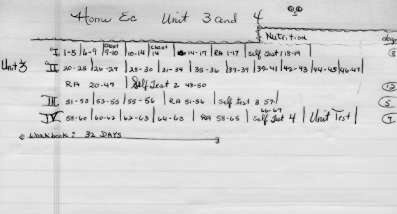 Home Ec Unit 3 and 4
Nutrition
I 1-5 6-9 9-10 10-14 14 14-17 RA 1-17 Self Test 18-19
Unit 3 II 20-25 26-29 29-30 31-34 35-36 37-39 39-41 42-43 44-45 46-49
RA 20-49 Self Test 2 49-50
III 51-52 53-55 55-56 RA 51-56 Self Test 3 57
66-67
IV 58-60 60-62 62-63 64-65 RA 58-65 Self Test 4 Unit Test
Workbook: 32 DAYS